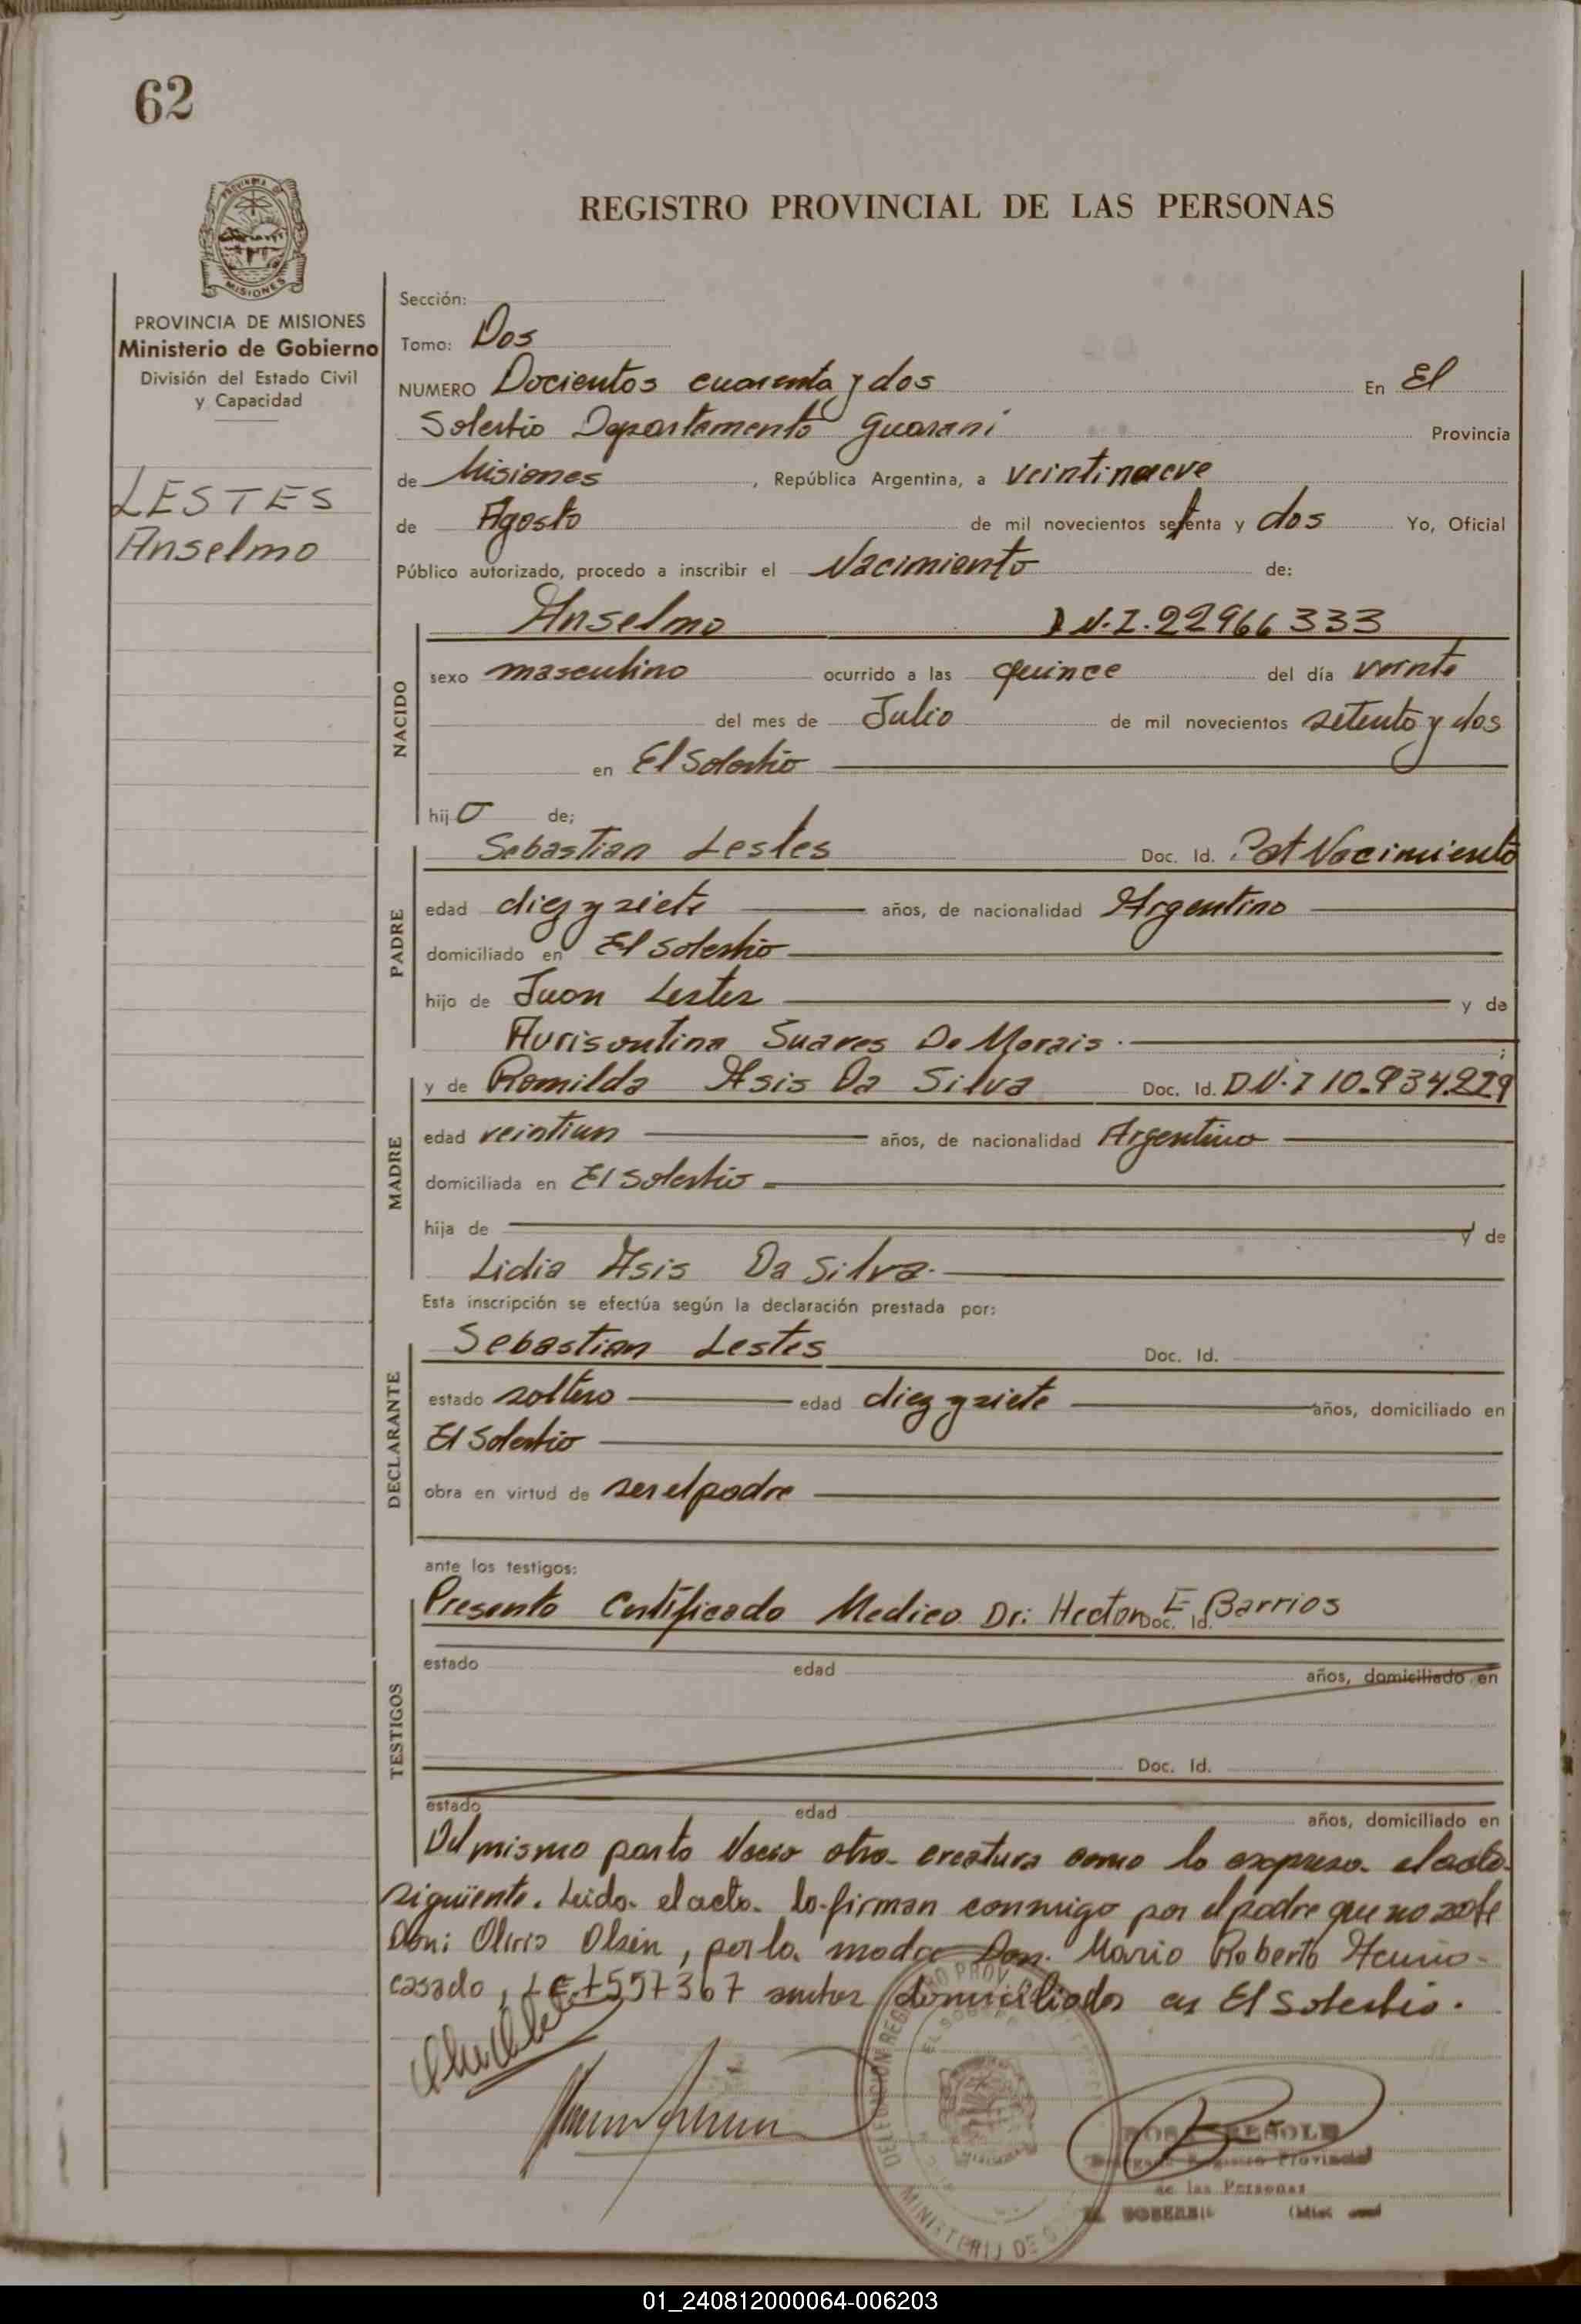 62
REGISTRO PROVINCIAL DE LAS PERSONAS
PROVINCIA DE MISIONES
Ministerio de Gobierno
División del Estado Civil
y Capacidad
LESTES
Anselmo
Sección:
Tomo: Dos
NUMERO Docientos cuarenta y dos En El
Solestio Departamento Guarani Provincia
de Misiones, República Argentina, a veintinueve
de Agosto de mil novecientos setenta y dos Yo, Oficial
Público autorizado, procedo a inscribir el Nacimiento de:
Anselmo D.N.I. 22966333
NACIDO
sexo masculino ocurrido a las quince del día veinte
del mes de Julio de mil novecientos setenta y dos
en El Solestio
hijo de;
PADRE
Sebastian Lestes Doc. Id. Pat Nacimiento
edad diez y siete años, de nacionalidad Argentino
domiciliado en El Solestio
hijo de Juan Lestes y de
Suares De Morais.
MADRE
y de Romilda Asis Da Silva Doc. Id. D.N.I 10.934.229
edad veintiun años, de nacionalidad Argentina
domiciliada en El Solestio
hija de y de
Lidia Asis Da Silva.
Esta inscripción se efectúa según la declaración prestada por:
DECLARANTE
Sebastian Lestes Doc. Id.
estado soltero edad diez y siete años, domiciliado en
El Solestio
obra en virtud de ser el padre
ante los testigos:
TESTIGOS
Presento Certificado Medico Dr: Hector E Barrios Doc. Id.
estado edad años, domiciliado en
Doc. Id.
estado edad años, domiciliado en
Del mismo parto Nacio otra creatura como lo expresa el acta
siguiente. Leida el acta lo firman conmigo por el padre que no sabe
Don: Oliris Olsen, por la madre Don. Mario Roberto
casado, L.E. 7557367 ambos domiciliados en El Solestio.
de las Personas
01_240812000064-006203